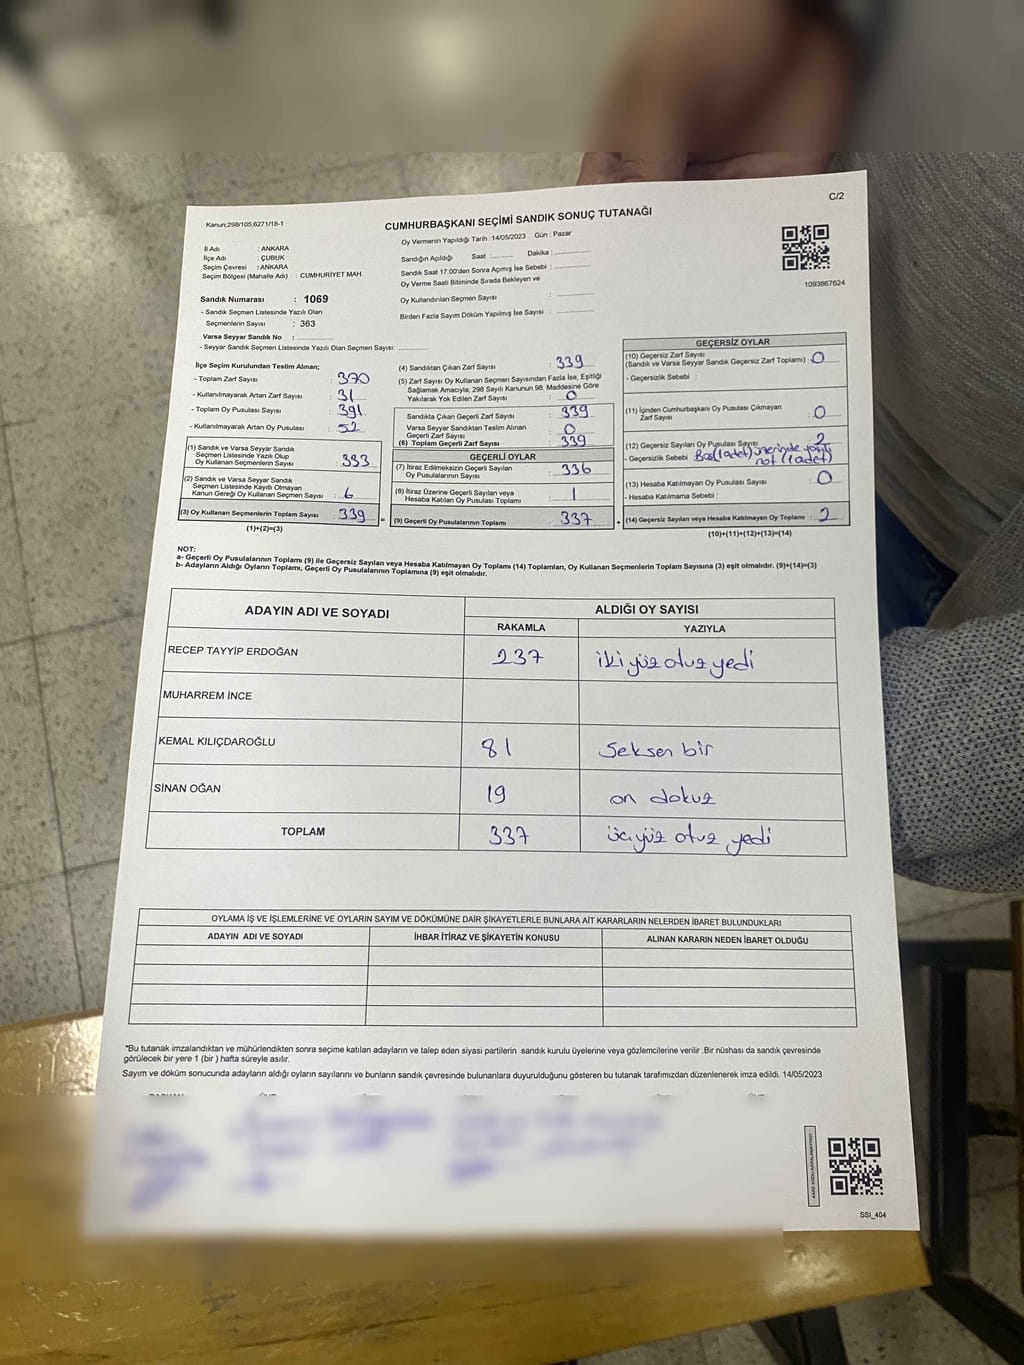 C/2
Kanun;298/105;6271/18-1
CUMHURBAŞKANI SEÇİMİ SANDIK SONUÇ TUTANAĞI
Oy Vermenin Yapıldığı Tarih :14/05/2023 Gün : Pazar
İl Adı : ANKARA
İlçe Adı : ÇUBUK
Seçim Çevresi : ANKARA
Seçim Bölgesi (Mahalle Adı) : CUMHURİYET MAH.
Sandığın Açıldığı Saat :.......... Dakika :..............
Sandık Saat 17:00'den Sonra Açımış İse Sebebi :..............
Oy Verme Saati Bitiminde Sırada Bekleyen ve
Oy Kullandırılan Seçmen Sayısı : ..............
Birden Fazla Sayım Döküm Yapılmış İse Sayısı : ..............
1093867624
Sandık Numarası : 1069
- Sandık Seçmen Listesinde Yazılı Olan
Seçmenlerin Sayısı : 363
Varsa Seyyar Sandık No : ..............
- Seyyar Sandık Seçmen Listesinde Yazılı Olan Seçmen Sayısı: ..........
İlçe Seçim Kurulundan Teslim Alınan;
- Toplam Zarf Sayısı : 370
- Kullanılmayarak Artan Zarf Sayısı : 31
- Toplam Oy Pusulası Sayısı : 391
- Kullanılmayarak Artan Oy Pusulası : 52
(1) Sandık ve Varsa Seyyar Sandık
Seçmen Listesinde Yazılı Olup
Oy Kullanan Seçmenlerin Sayısı : 333
(2) Sandık ve Varsa Seyyar Sandık
Seçmen Listesinde Kayıtlı Olmayan
Kanun Gereği Oy Kullanan Seçmen Sayısı : 6
(3) Oy Kullanan Seçmenlerin Toplam Sayısı : 339
(1)+(2)=(3)
=
(4) Sandıktan Çıkan Zarf Sayısı : 339
(5) Zarf Sayısı Oy Kullanan Seçmen Sayısından Fazla İse, Eşitliği
Sağlamak Amacıyla; 298 Sayılı Kanunun 98. Maddesine Göre
Yakılarak Yok Edilen Zarf Sayısı : 0
Sandıkta Çıkan Geçerli Zarf Sayısı : 339
Varsa Seyyar Sandıktan Teslim Alınan
Geçerli Zarf Sayısı : 0
(6) Toplam Geçerli Zarf Sayısı : 339
GEÇERLİ OYLAR
(7) İtiraz Edilmeksizin Geçerli Sayılan
Oy Pusulalarının Sayısı : 336
(8) İtiraz Üzerine Geçerli Sayılan veya
Hesaba Katılan Oy Pusulası Toplamı : 1
(9) Geçerli Oy Pusulalarının Toplamı : 337
+
GEÇERSİZ OYLAR
(10) Geçersiz Zarf Sayısı
(Sandık ve Varsa Seyyar Sandık Geçersiz Zarf Toplamı) : 0
- Geçersizlik Sebebi :
(11) İçinden Cumhurbaşkanı Oy Pusulası Çıkmayan
Zarf Sayısı : 0
(12) Geçersiz Sayılan Oy Pusulası Sayısı 2
- Geçersizlik Sebebi Boş(1adet) üzerinde yazılı
not (1 adet)
(13) Hesaba Katılmayan Oy Pusulası Sayısı : 0
- Hesaba Katılmama Sebebi :
(14) Geçersiz Sayılan veya Hesaba Katılmayan Oy Toplamı : 2
(10)+(11)+(12)+(13)=(14)
NOT:
a- Geçerli Oy Pusulalarının Toplamı (9) ile Geçersiz Sayılan veya Hesaba Katılmayan Oy Toplamı (14) Toplamları, Oy Kullanan Seçmenlerin Toplam Sayısına (3) eşit olmalıdır. (9)+(14)=(3)
b- Adayların Aldığı Oyların Toplamı, Geçerli Oy Pusulalarının Toplamına (9) eşit olmalıdır.
ADAYIN ADI VE SOYADI ALDIĞI OY SAYISI
RAKAMLA YAZIYLA
RECEP TAYYİP ERDOĞAN 237 iki yüz otuz yedi
MUHARREM İNCE
KEMAL KILIÇDAROĞLU 81 Seksen bir
SİNAN OĞAN 19 on dokuz
TOPLAM 337 üçyüz otuz yedi
OYLAMA İŞ VE İŞLEMLERİNE VE OYLARIN SAYIM VE DÖKÜMÜNE DAİR ŞİKAYETLERLE BUNLARA AİT KARARLARIN NELERDEN İBARET BULUNDUKLARI
ADAYIN ADI VE SOYADI İHBAR İTİRAZ VE ŞİKAYETİN KONUSU ALINAN KARARIN NEDEN İBARET OLDUĞU
*Bu tutanak imzalandıktan ve mühürlendikten sonra seçime katılan adayların ve talep eden siyasi partilerin sandık kurulu üyelerine veya gözlemcilerine verilir .Bir nüshası da sandık çevresinde
görülecek bir yere 1 (bir ) hafta süreyle asılır.
Sayım ve döküm sonucunda adayların aldığı oyların sayılarını ve bunların sandık çevresinde bulunanlara duyurulduğunu gösteren bu tutanak tarafımızdan düzenlenerek imza edildi. 14/05/2023
SSI_404